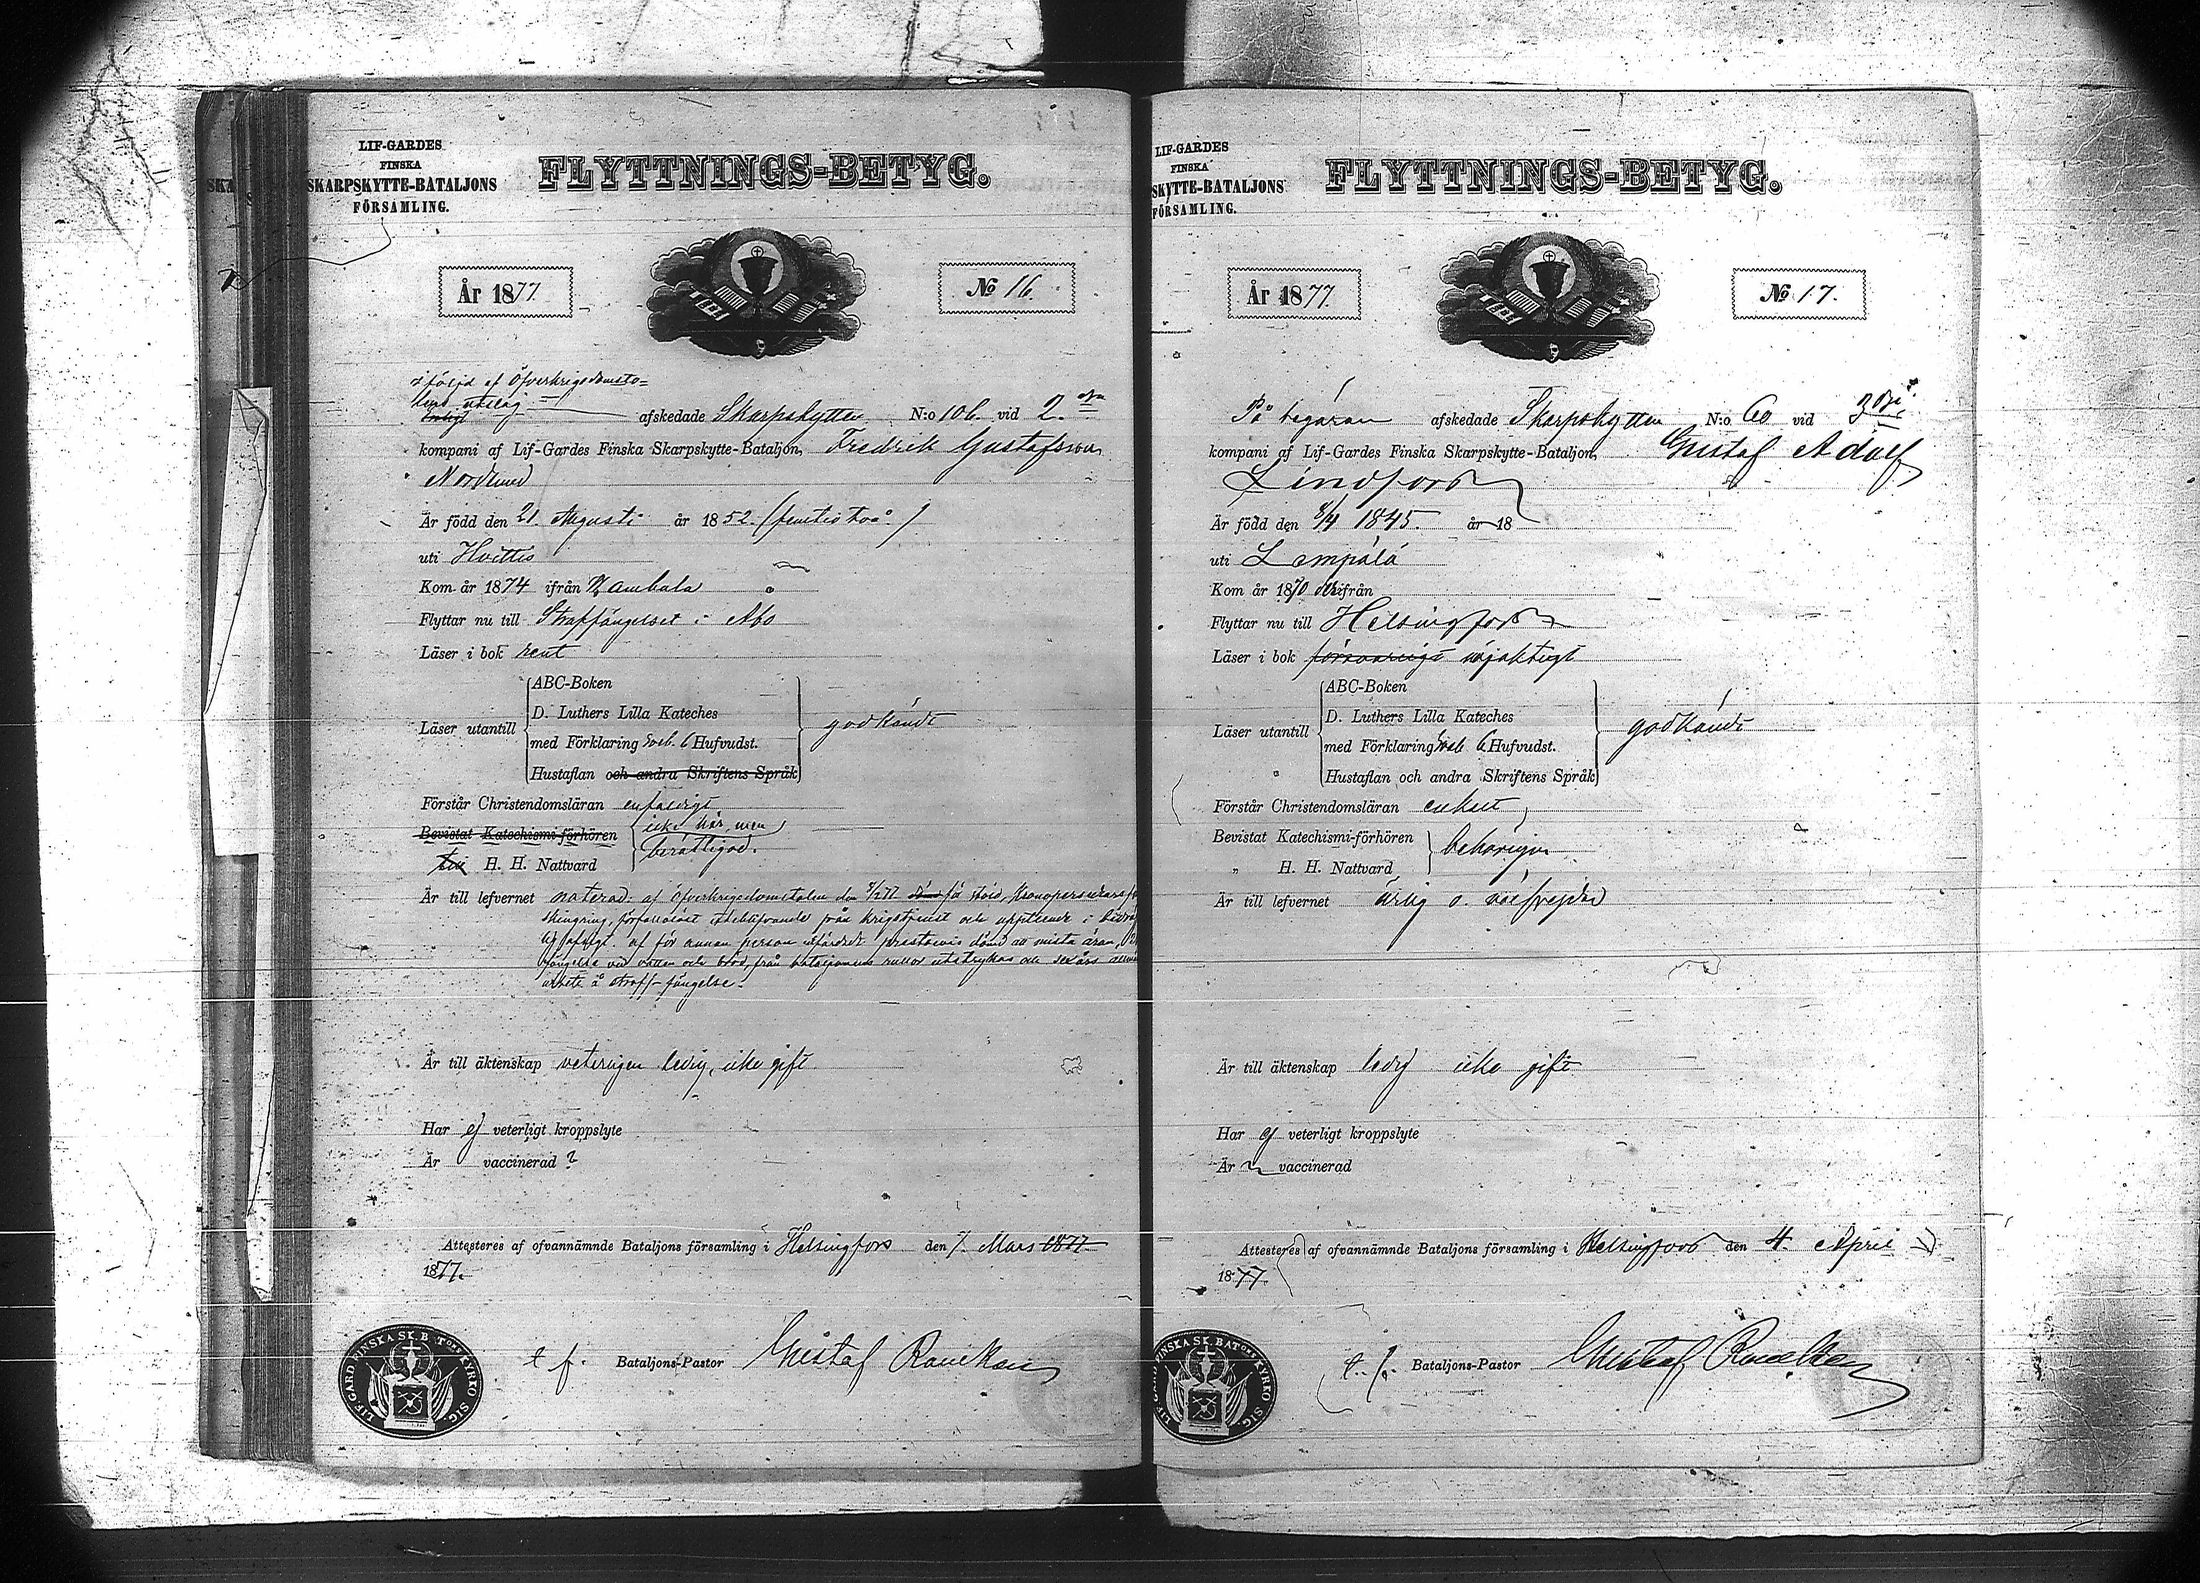 LIF-GARDES
FINSKA
SKARPSKYTTE-BATALJONS
FÖRSAMLING.
FLYTTNINGS-BETYG.
År 1877.
No 16.
i följd af Öfverkrigsdomsto=
lens utslag
afskedade Skarpskytten N:o 106 vid 2.dra
kompani af Lif-Gardes Finska Skarpskytte-Bataljon, Fredrik Gustafsson
Nordlund
Är född den 21. Augusti år 1852. (femtio två.)
uti Hvittis
Kom år 1874 ifrån
Flyttar nu till Straffängelset i Åbo
Läser i bok rent
ABC-Boken
D. Luthers Lilla Kateches
Läser utantill
med Förklaring 6 Hufvudst.
godkändt
Hustaflan och andra Skriftens Språk
Förstår Christendomsläran enfaldigt
Bevistat Katechismi-förhören icke här, men
H. H. Nattvard berättigad.
Är till lefvernet af Öfverkrigsdomstolen den för stöld, Kronopersedlars
skingring, från krigstjenst och
af för annan person prestbevis dömd att mista äran,
fängelse vid vatten och bröd, från bataljonens rullor utstrykas och sex års
arbete å straff-fängelse.
Är till äktenskap veterligen ledig, icke gift
Har ej veterligt kroppslyte
Är vaccinerad ?
Attesteres af ofvannämnde Bataljons församling i Helsingfors den 7. Mars 1877
1877.
t. f. Bataljons-Pastor Gustaf
LIF-GARD. FINSKA SK. BAT:ons KYRKO SIG.
LIF-GARDES
FINSKA
SKYTTE-BATALJONS
FÖRSAMLING.
FLYTTNINGS-BETYG.
År 1877.
No 17.
På begäran afskedade Skarpskytten N:o 60 vid 3dje
kompani af Lif-Gardes Finska Skarpskytte-Bataljon, Gustaf Adolf
Lindfors
Är född den 8/4 1845. år 18
uti Lempälä
Kom år 1870 ifrån
Flyttar nu till Helsingfors
Läser i bok försvarligt nöjaktigt
ABC-Boken
D. Luthers Lilla Kateches
Läser utantill
med Förklaring 6 Hufvudst.
godkändt
Hustaflan och andra Skriftens Språk
Förstår Christendomsläran enkelt
Bevistat Katechismi-förhören
behörigen
„ H. H. Nattvard
Är till lefvernet ärlig o. välfrejdad
Är till äktenskap ledig icke gift
Har ej veterligt kroppslyte
Är vaccinerad
Attesteres af ofvannämnde Bataljons församling i Helsingfors den 4. April
1877.
t. f. Bataljons-Pastor Gustaf
LIF-GARD. FINSKA SK. BAT:ons KYRKO SIG.